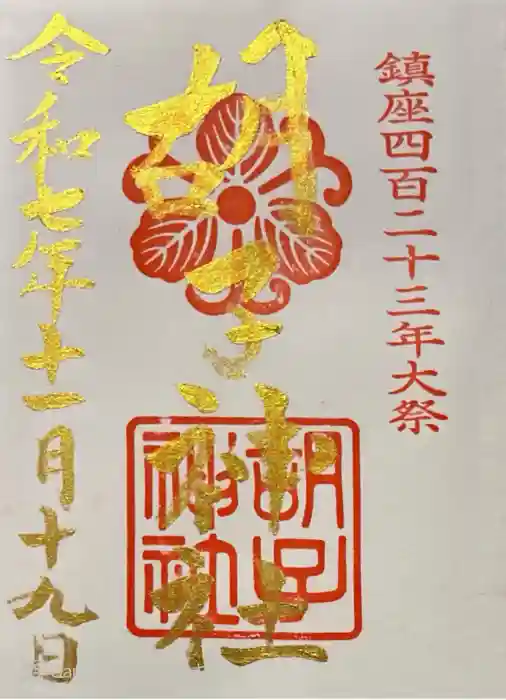 鎮座四百二十三年大祭
胡子神社
胡子
神社
令和七年十一月十九日